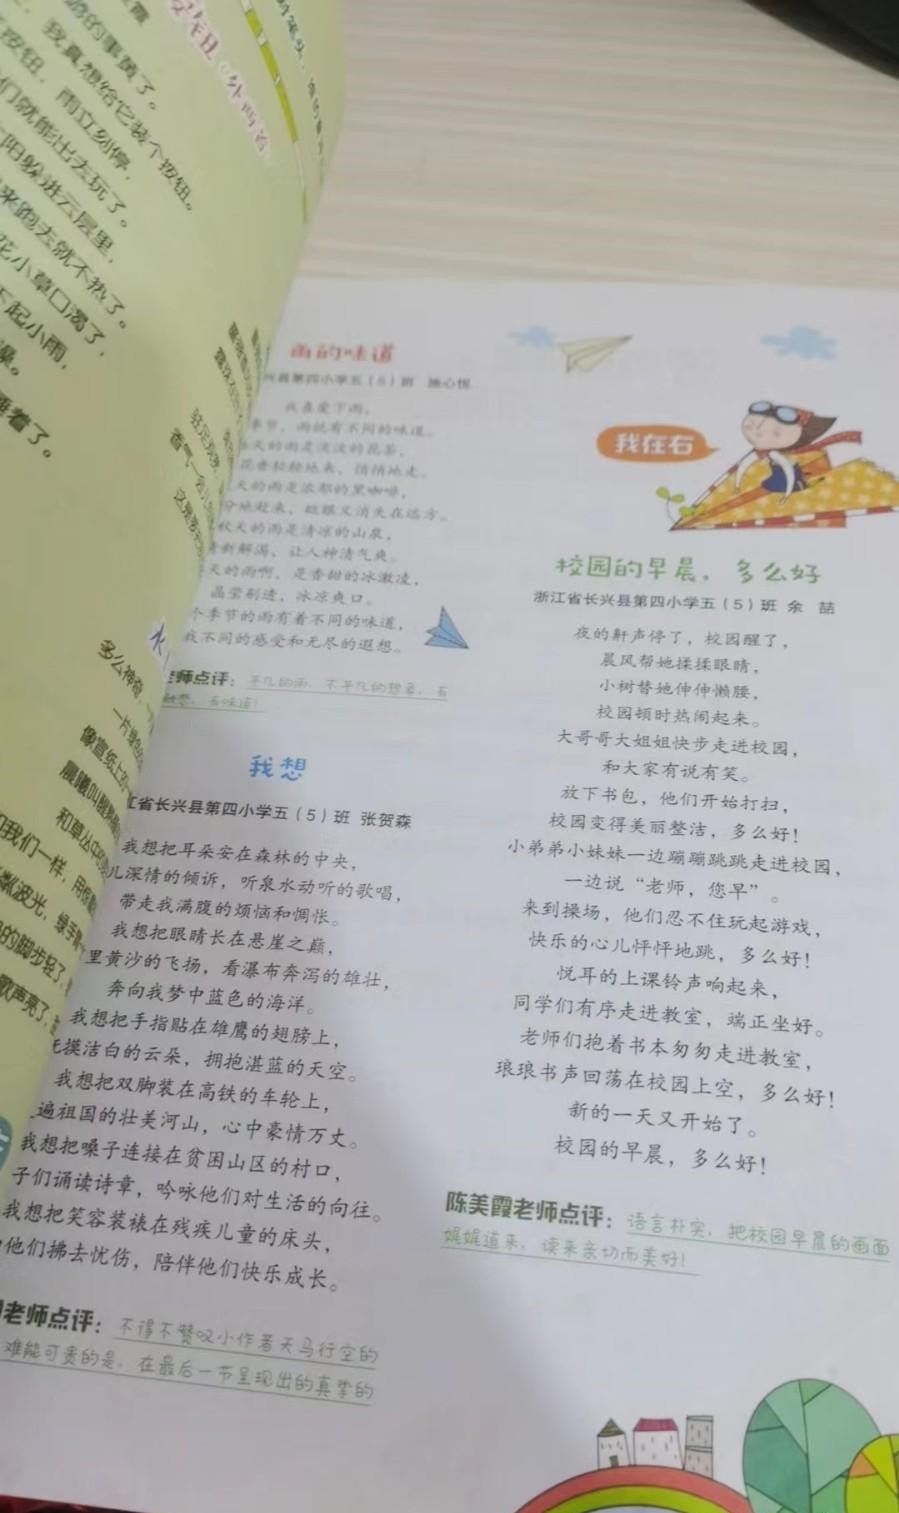 游的事黄了。
我真想给它装个按钮。
按钮，雨立刻停，
们就能出去玩了。
阳躲进云层里，
来跑去就不热了。
花小草口渴了，
下起小雨，
澡。
睡着了。
雨的味道
兴县第四小学五（5）班 施心悦
我喜爱下雨，
季节，雨就有不同的味道。
天的雨是淡淡的花茶，
花香轻轻地来，悄悄地走。
天的雨是浓郁的黑咖啡，
分地赶来，眨眼又消失在远方。
秋天的雨是清凉的山泉，
清新解渴，让人神清气爽。
天的雨啊，是香甜的冰激凌，
晶莹剔透，冰凉爽口。
个季节的雨有着不同的味道，
我不同的感受和无尽的遐想。
老师点评：平凡的雨，不平凡的想象，有
有味道！
我想
江省长兴县第四小学五（5）班 张贺森
我想把耳朵安在森林的中央，
儿深情的倾诉，听泉水动听的歌唱，
带走我满腹的烦恼和惆怅。
我想把眼睛长在悬崖之巅，
里黄沙的飞扬，看瀑布奔泻的雄壮，
奔向我梦中蓝色的海洋。
我想把手指贴在雄鹰的翅膀上，
抚摸洁白的云朵，拥抱湛蓝的天空。
我想把双脚装在高铁的车轮上，
遍祖国的壮美河山，心中豪情万丈。
我想把嗓子连接在贫困山区的村口，
子们诵读诗章，吟咏他们对生活的向往。
我想把笑容装裱在残疾儿童的床头，
他们拂去忧伤，陪伴他们快乐成长。
老师点评：不得不赞叹小作者天马行空的
难能可贵的是，在最后一节呈现出的真挚的
我在右
校园的早晨，多么好
浙江省长兴县第四小学五（5）班 余 喆
夜的鼾声停了，校园醒了，
晨风帮她揉揉眼睛，
小树替她伸伸懒腰，
校园顿时热闹起来。
大哥哥大姐姐快步走进校园，
和大家有说有笑。
放下书包，他们开始打扫，
校园变得美丽整洁，多么好！
小弟弟小妹妹一边蹦蹦跳跳走进校园，
一边说“老师，您早”。
来到操场，他们忍不住玩起游戏，
快乐的心儿怦怦地跳，多么好！
悦耳的上课铃声响起来，
同学们有序走进教室，端正坐好。
老师们抱着书本匆匆走进教室，
琅琅书声回荡在校园上空，多么好！
新的一天又开始了。
校园的早晨，多么好！
陈美霞老师点评：语言朴实，把校园早晨的画面
娓娓道来，读来亲切而美好！